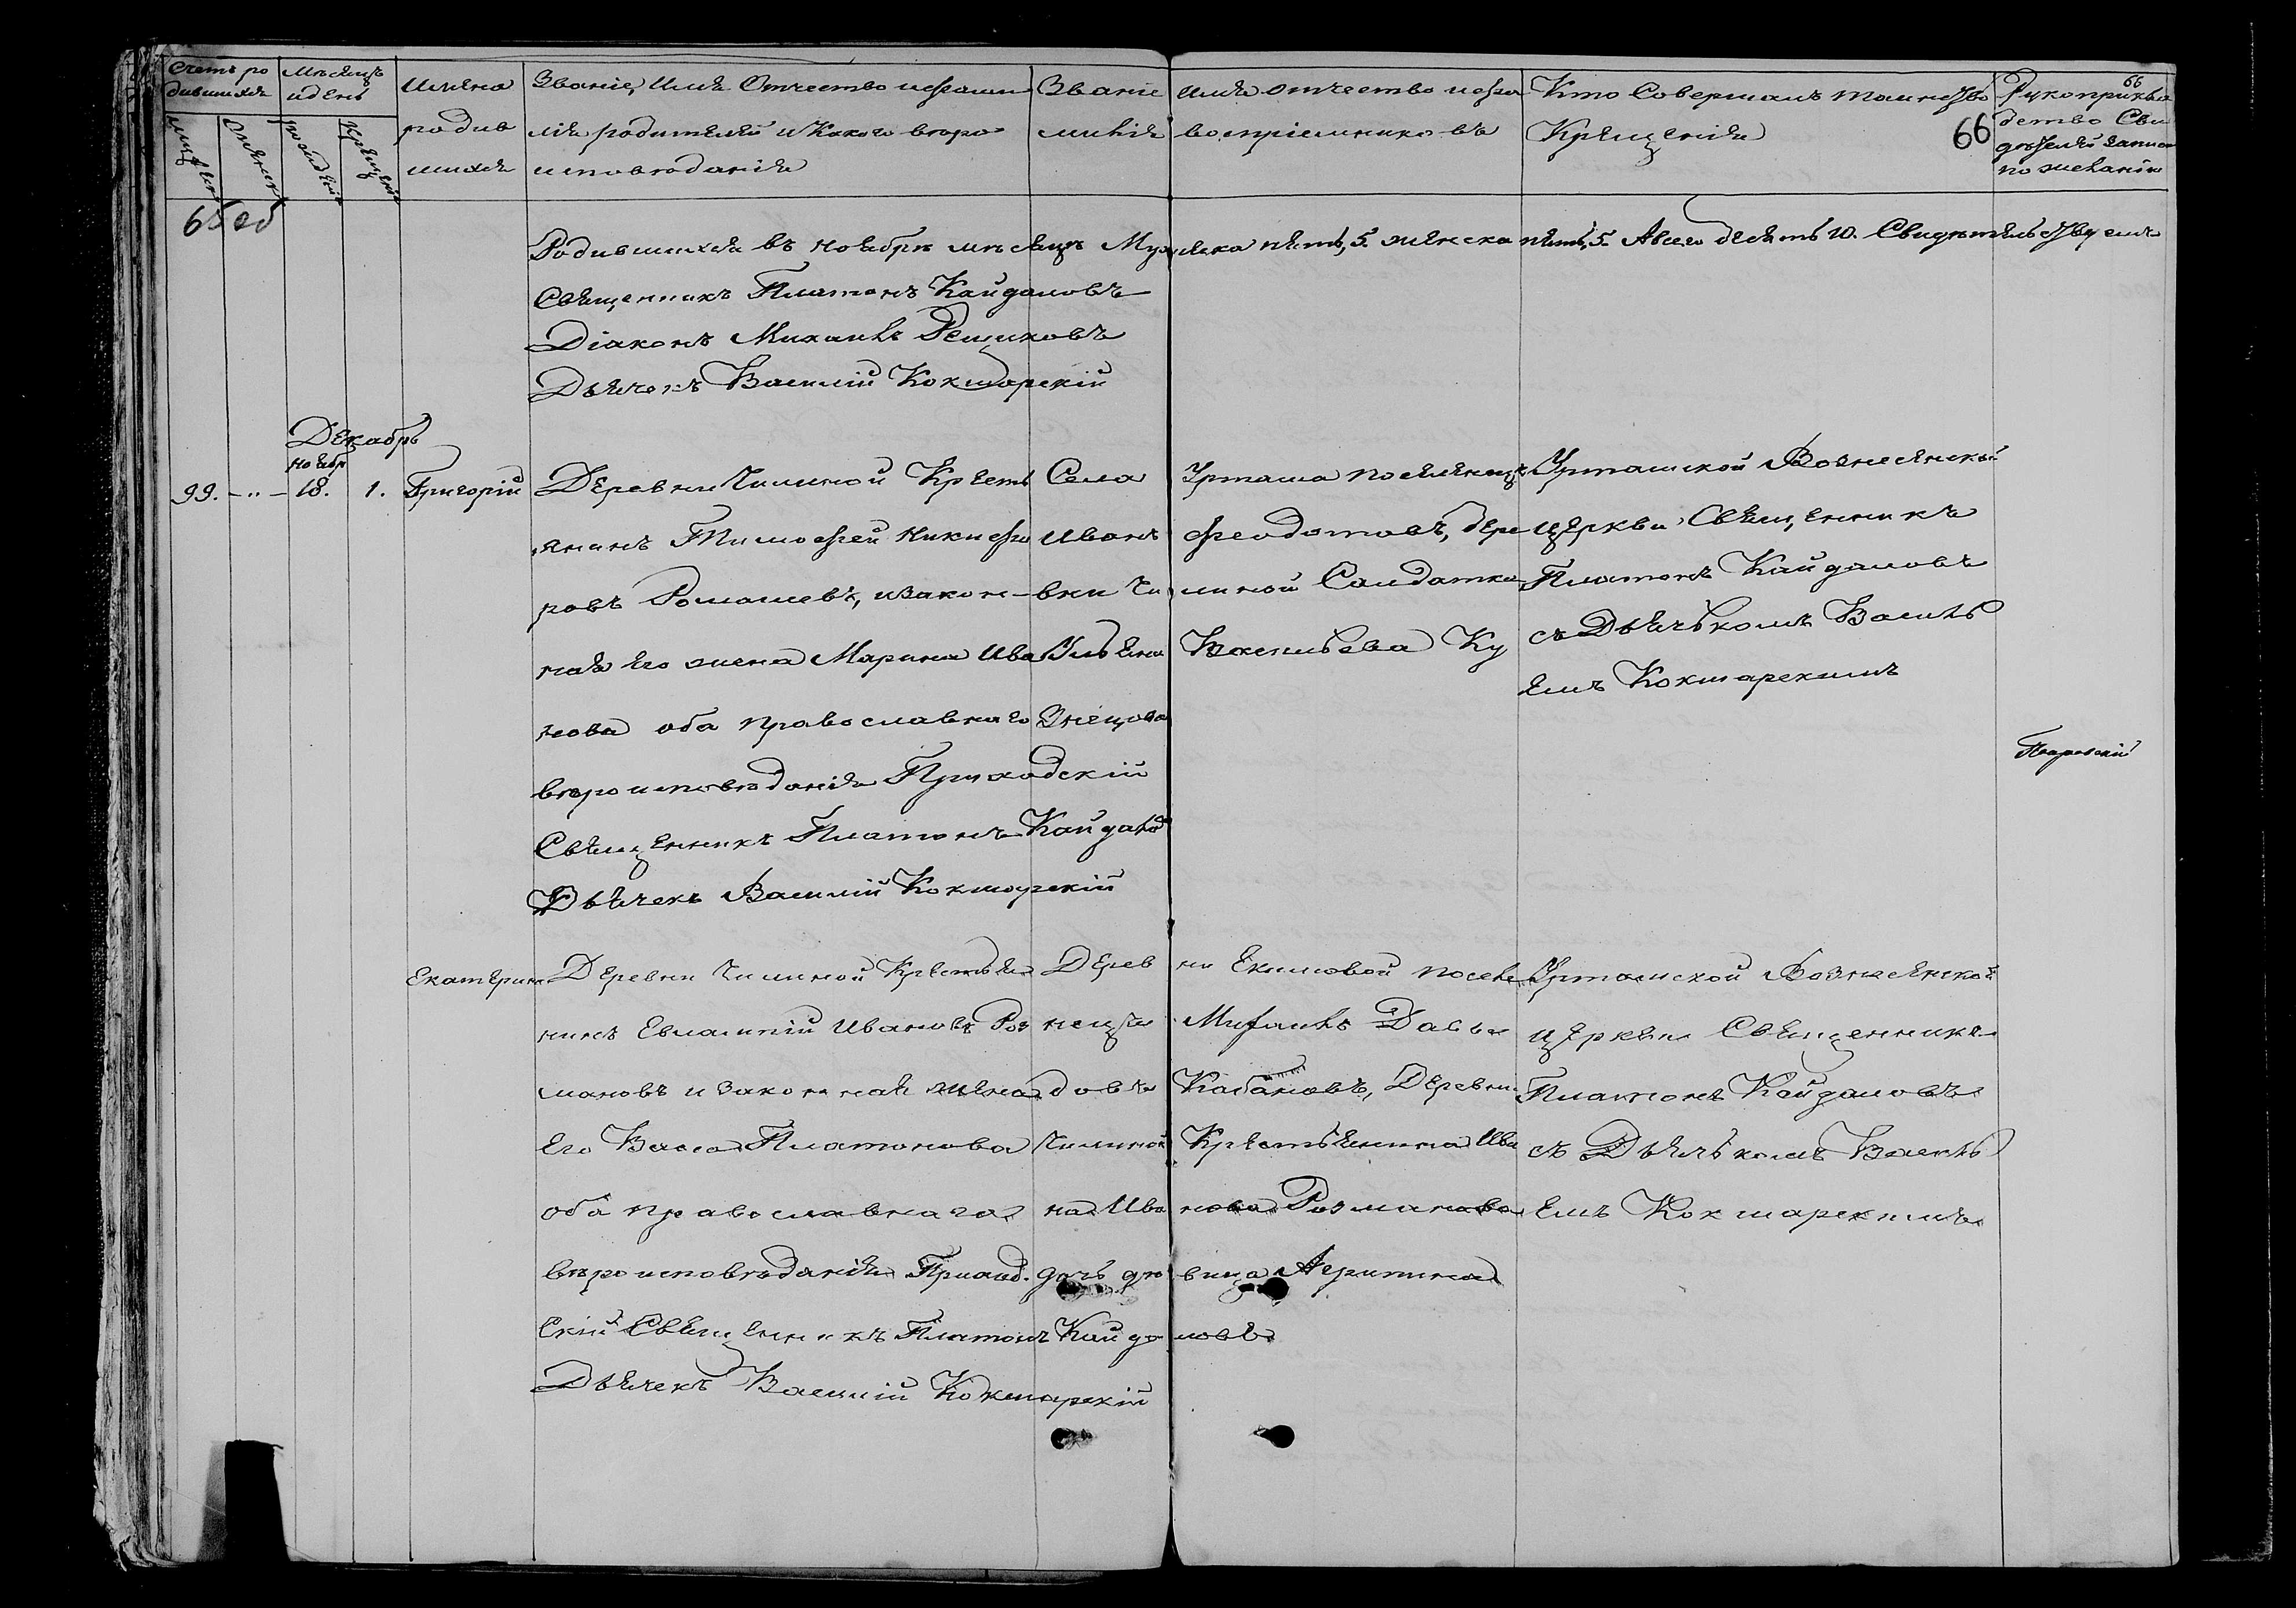 Счетъ ро
дившихся
Мужеска
Женска
Месяцъ
и день
рождения
Крещения
Имена
родив
шихся
Званіе, Имя Отчество и фами
лія родителей и Какого веро
исповеданія
Званіе имя отчество и фа
милія восприемниковъ
Кто Совершалъ таинство
Крещенія
66
66
Рукоприкла
детво Сви
детелей записи
по желанію
65 об
Родившихся въ ноябре месяце Мужеска пять, 5. женска пять, 5. А всего десять 10. Свидетельствуемъ
Священникъ Платонъ Кайдаловъ
Діаконъ Михаилъ
Дьячекъ Василій Кокшарскій
Декабрь
ноябр
99. -"- 18. 1. Григорій
Деревни Чилиной Кресть
янинъ Тимофей Никифо
ровъ Ромашевъ, и закон-
ная его жена Марина Ива
нова оба православнаго
вероисповеданія Приходскій
Священникъ Платонъ Кайдалов
Дьячекъ Василій Кокшарскій
Села Уртама поселенецъ
Иванъ Феодотовъ, дере
вни Чилиной Солдатка
Ульяна Васильева Ку
знецова
Уртамской Вознесенской
церкви Священникъ
Платонъ Кайдаловъ
съ Дьячькомъ Василь
емъ Кокшарскимъ
Покровский
Екатерина
Деревни Чилиной Крестья
нинъ Евлампій Ивановъ Роз
мановъ и законная жена
его Васса Платонова
оба православнаго
вероисповеданія Приход.
скій Священникъ Платонъ Кайдаловъ
Дьячекъ Василій Кокшарскій
Деревни Екимовой поселе
нецъ Михаилъ Давы
довъ Кабановъ, Деревни
Чилиной Крестьянина Ива
на Иванова Розманова
дочь девица Агрипина
Уртамской Вознесенской
церкви Священникъ
Платонъ Кайдаловъ
съ Дьячькомъ Василь
емъ Кокшарскимъ